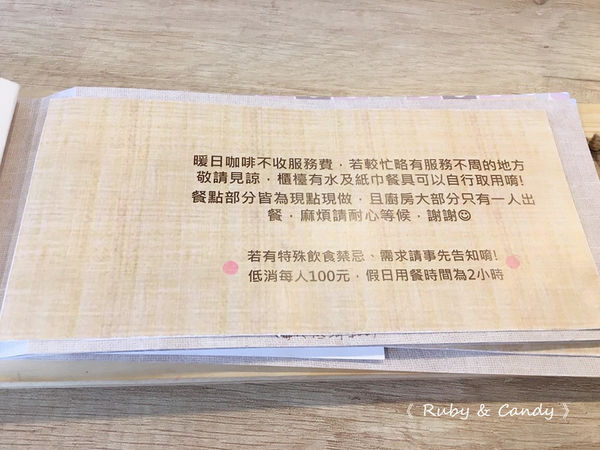 暖日咖啡不收服務費，若較忙略有服務不周的地方
敬請見諒，櫃檯有水及紙巾餐具可以自行取用唷!
餐點部分皆為現點現做，且廚房大部分只有一人出
餐，麻煩請耐心等候，謝謝☺
若有特殊飲食禁忌、需求請事先告知唷!
低消每人100元，假日用餐時間為2小時
《 Ruby & Candy 》